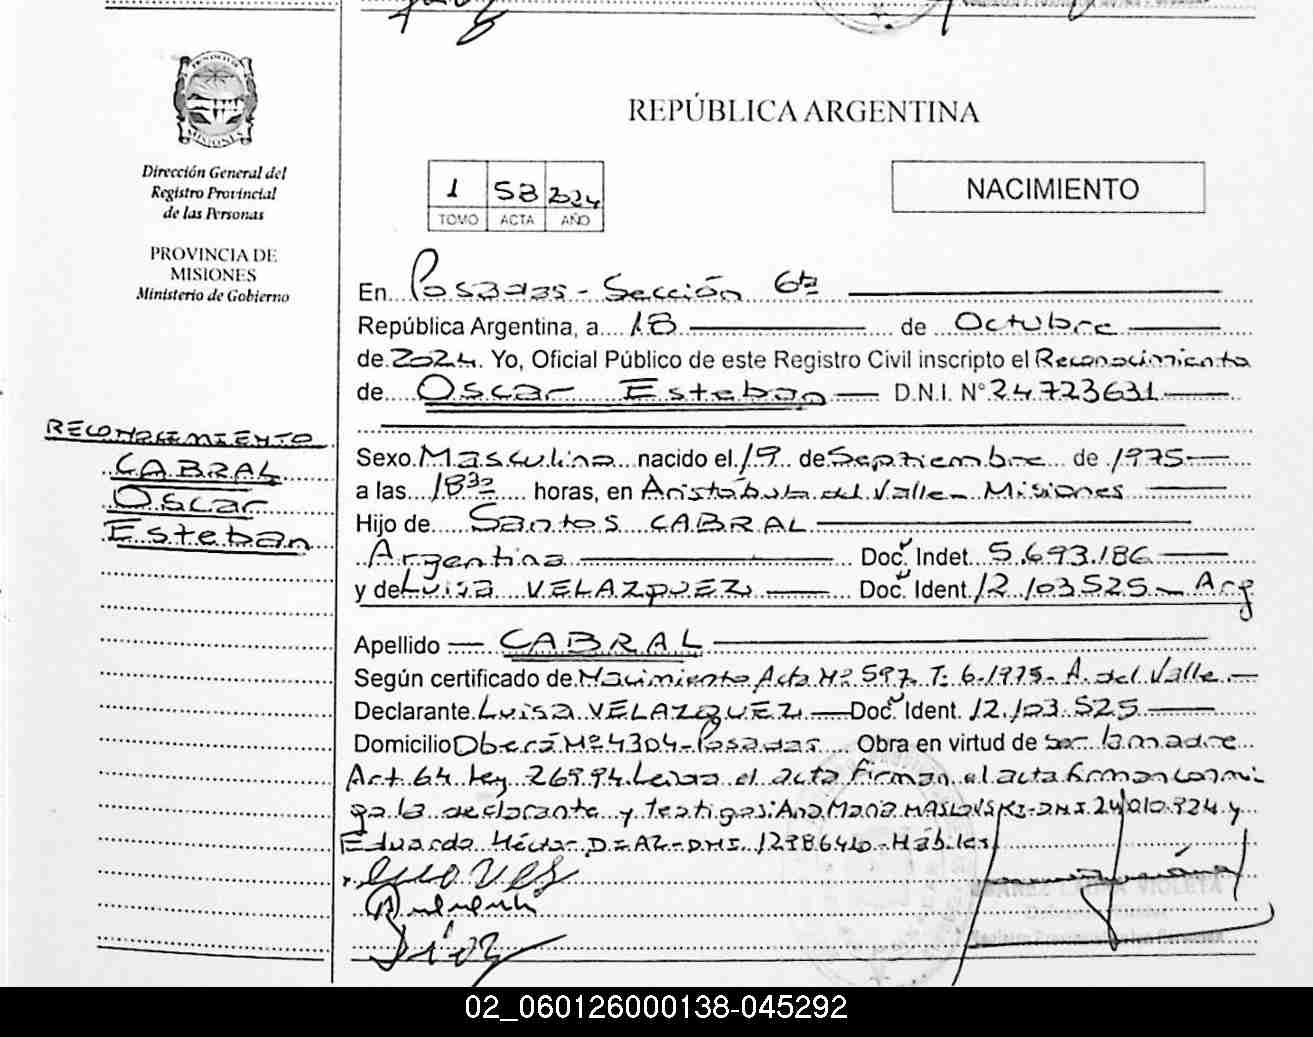 REPÚBLICA ARGENTINA
MISIONES
Dirección General del
Registro Provincial
de las Personas
PROVINCIA DE
MISIONES
Ministerio de Gobierno
1 58 2024
TOMO ACTA AÑO
NACIMIENTO
En Posadas - Sección 6ta
República Argentina, a 18 de Octubre
de 2024. Yo, Oficial Público de este Registro Civil inscripto el Reconocimiento
de Oscar Esteban D.N.I. N° 24.723631
RECONOCIMIENTO
CABRAL
Oscar
Esteban
Sexo Masculino nacido el 19 de Septiembre de 1975
a las 18 30 horas, en Aristóbulo del Valle - Misiones
Hijo de Santos CABRAL
Argentina Doc. Indet. 5.693.186
y de Luisa VELAZQUEZ Doc. Ident. 12.103.525 - Arg
Apellido CABRAL
Según certificado de Nacimiento Acta Nº 597. T: 6-1975- A. del Valle
Declarante Luisa VELAZQUEZ Doc. Ident. 12.103.525
Domicilio Oberá Nº 4304 - Posadas Obra en virtud de ser la madre
Art. 64 Ley 26994. Leida el acta firman el acta firman conmi
go la declarante y testigos: Ana María MASLOVSKI - DNI. 24010.924 y
Eduardo Héctor DIAZ - DNI. 12986410 - Hábiles
02_060126000138-045292